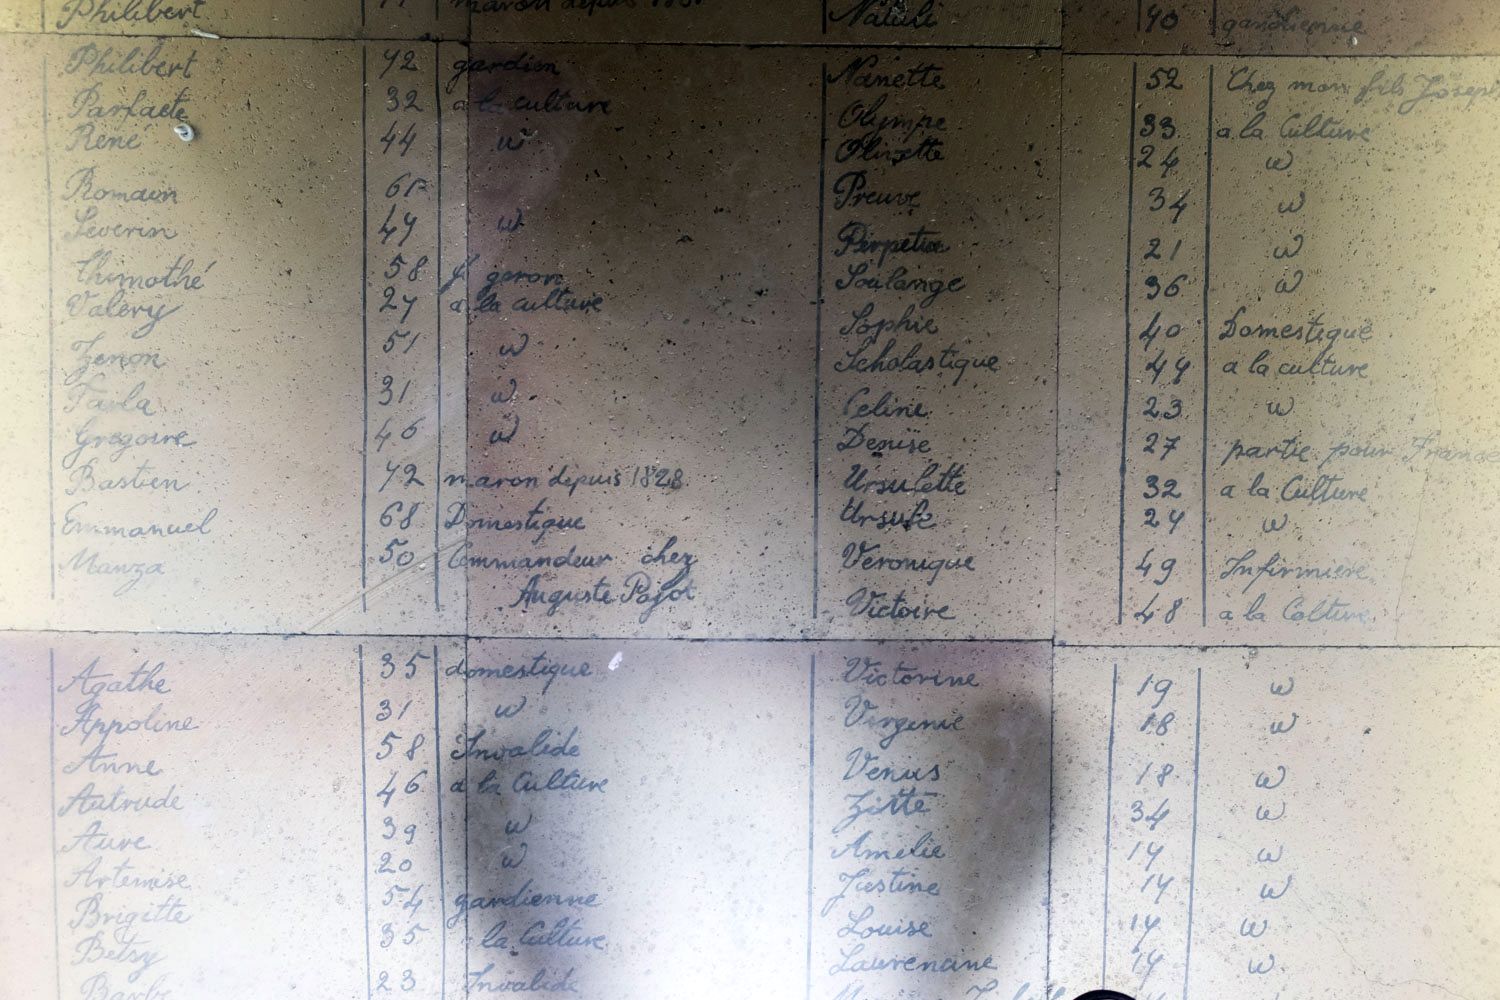 Philibert
maron depuis
Philibert 42 gardien
Parfaete 32 a la culture
René 44 w
Romain
Séverin 47 w
Thimothé 58 geron
Valery 27 a la culture
Zenon 51 w
Farla 31 w
Gregoire 46 w
Bastien 42 maron depuis 1828
Emmanuel 68 Domestique
Manza 50 Commandeur chez
Auguste Pajot
Agathe 35 domestique
Appoline 31 w
Anne 58 Invalide
Autrude 46 a la Culture
Aure 39 w
Artemise 20 w
Brigitte 54 gardienne
Betsy 35 la Culture
Barbe 23 Invalide
Natuli 40 gardienne
Nanette 52 Chez mon fils Joseph
Olympe 33 a la Culture
Olivette 24 w
Preuve 34 w
Perpetue 21 w
Soulange 36 w
Sophie 40 Domestique
Scholastique 44 a la culture
Celine 23 w
Denise 27 partie pour France
Ursulette 32 a la Culture
Ursule 24 w
Veronique 49 Infirmiere
Victoire 48 a la Colture
Victorine 19 w
Virginie 18 w
Venus 18 w
Zitte 34 w
Amelie 14 w
Justine 14 w
Louise 14 w
Laurencine 14 w